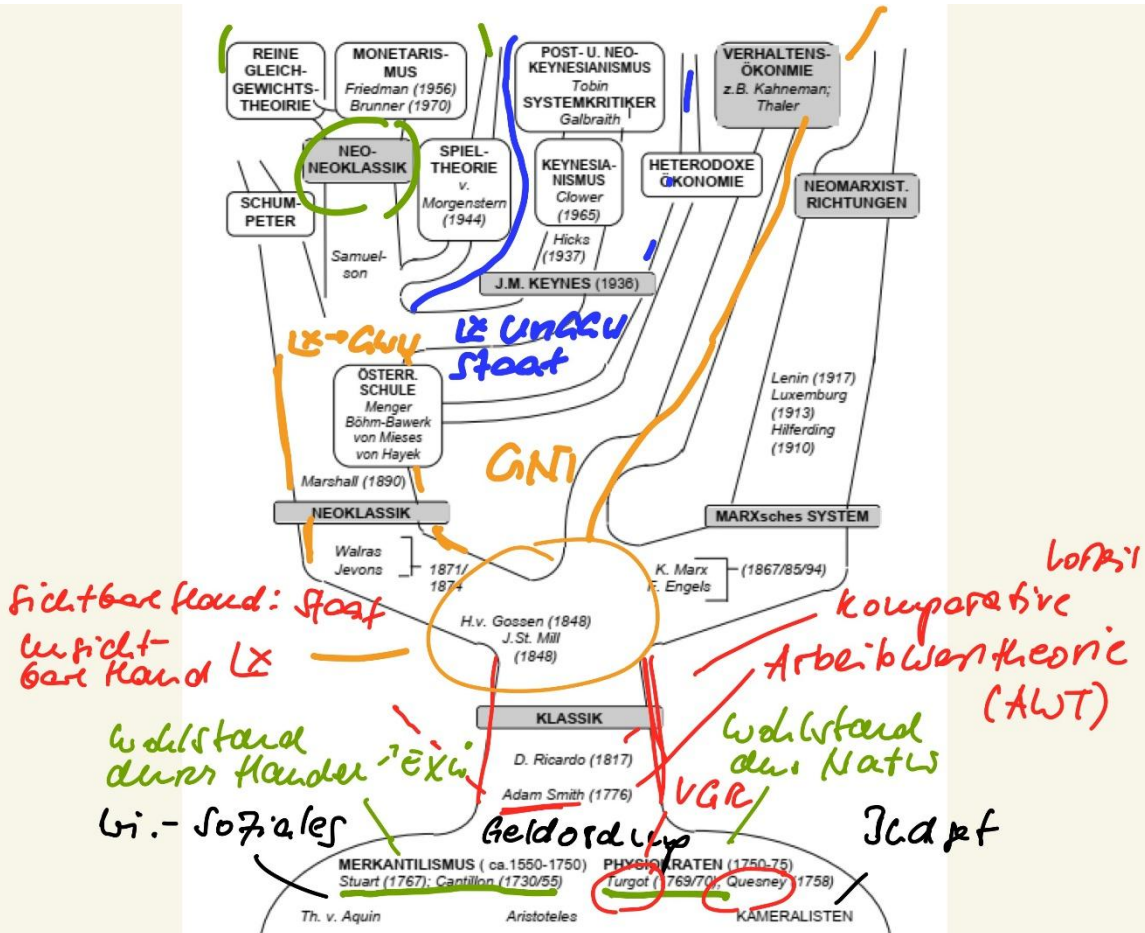 REINE
GLEICH-
GEWICHTS-
THEOIRIE
MONETARIS-
MUS
Friedman (1956)
Brunner (1970)
POST- U. NEO-
KEYNESIANISMUS
Tobin
SYSTEMKRITIKER
Galbraith
VERHALTENS-
ÖKONMIE
z.B. Kahneman;
Thaler
NEO-
NEOKLASSIK
SPIEL-
THEORIE
v.
Morgenstern
(1944)
KEYNESIA-
NISMUS
Clower
(1965)
HETERODOXE
ÖKONOMIE
NEOMARXIST.
RICHTUNGEN
SCHUM-
PETER
Samuel-
son
Hicks
(1937)
J.M. KEYNES (1936)
UnGGW
Staat
ÖSTERR.
SCHULE
Menger
Böhm-Bawerk
von Mieses
von Hayek
Lenin (1917)
Luxemburg
(1913)
Hilferding
(1910)
Marshall (1890)
NEOKLASSIK
MARXsches SYSTEM
Walras
Jevons
1871/
1874
K. Marx
F. Engels
(1867/85/94)
Sichtbare Hand: Staat
unsicht-
bare Hand
H.v. Gossen (1848)
J.St. Mill
(1848)
Vorteil
Komparative
Arbeitswerttheorie
(AWT)
KLASSIK
D. Ricardo (1817)
Adam Smith (1776)
Wohlstand
durch Handel
Wohlstand
Natur
VGR
Soziales
Geldordnung
Budget
MERKANTILISMUS ( ca.1550-1750)
Stuart (1767); Cantillon (1730/55)
PHYSIOKRATEN (1750-75)
Turgot (1769/70), Quesney (1758)
Th. v. Aquin
Aristoteles
KAMERALISTEN